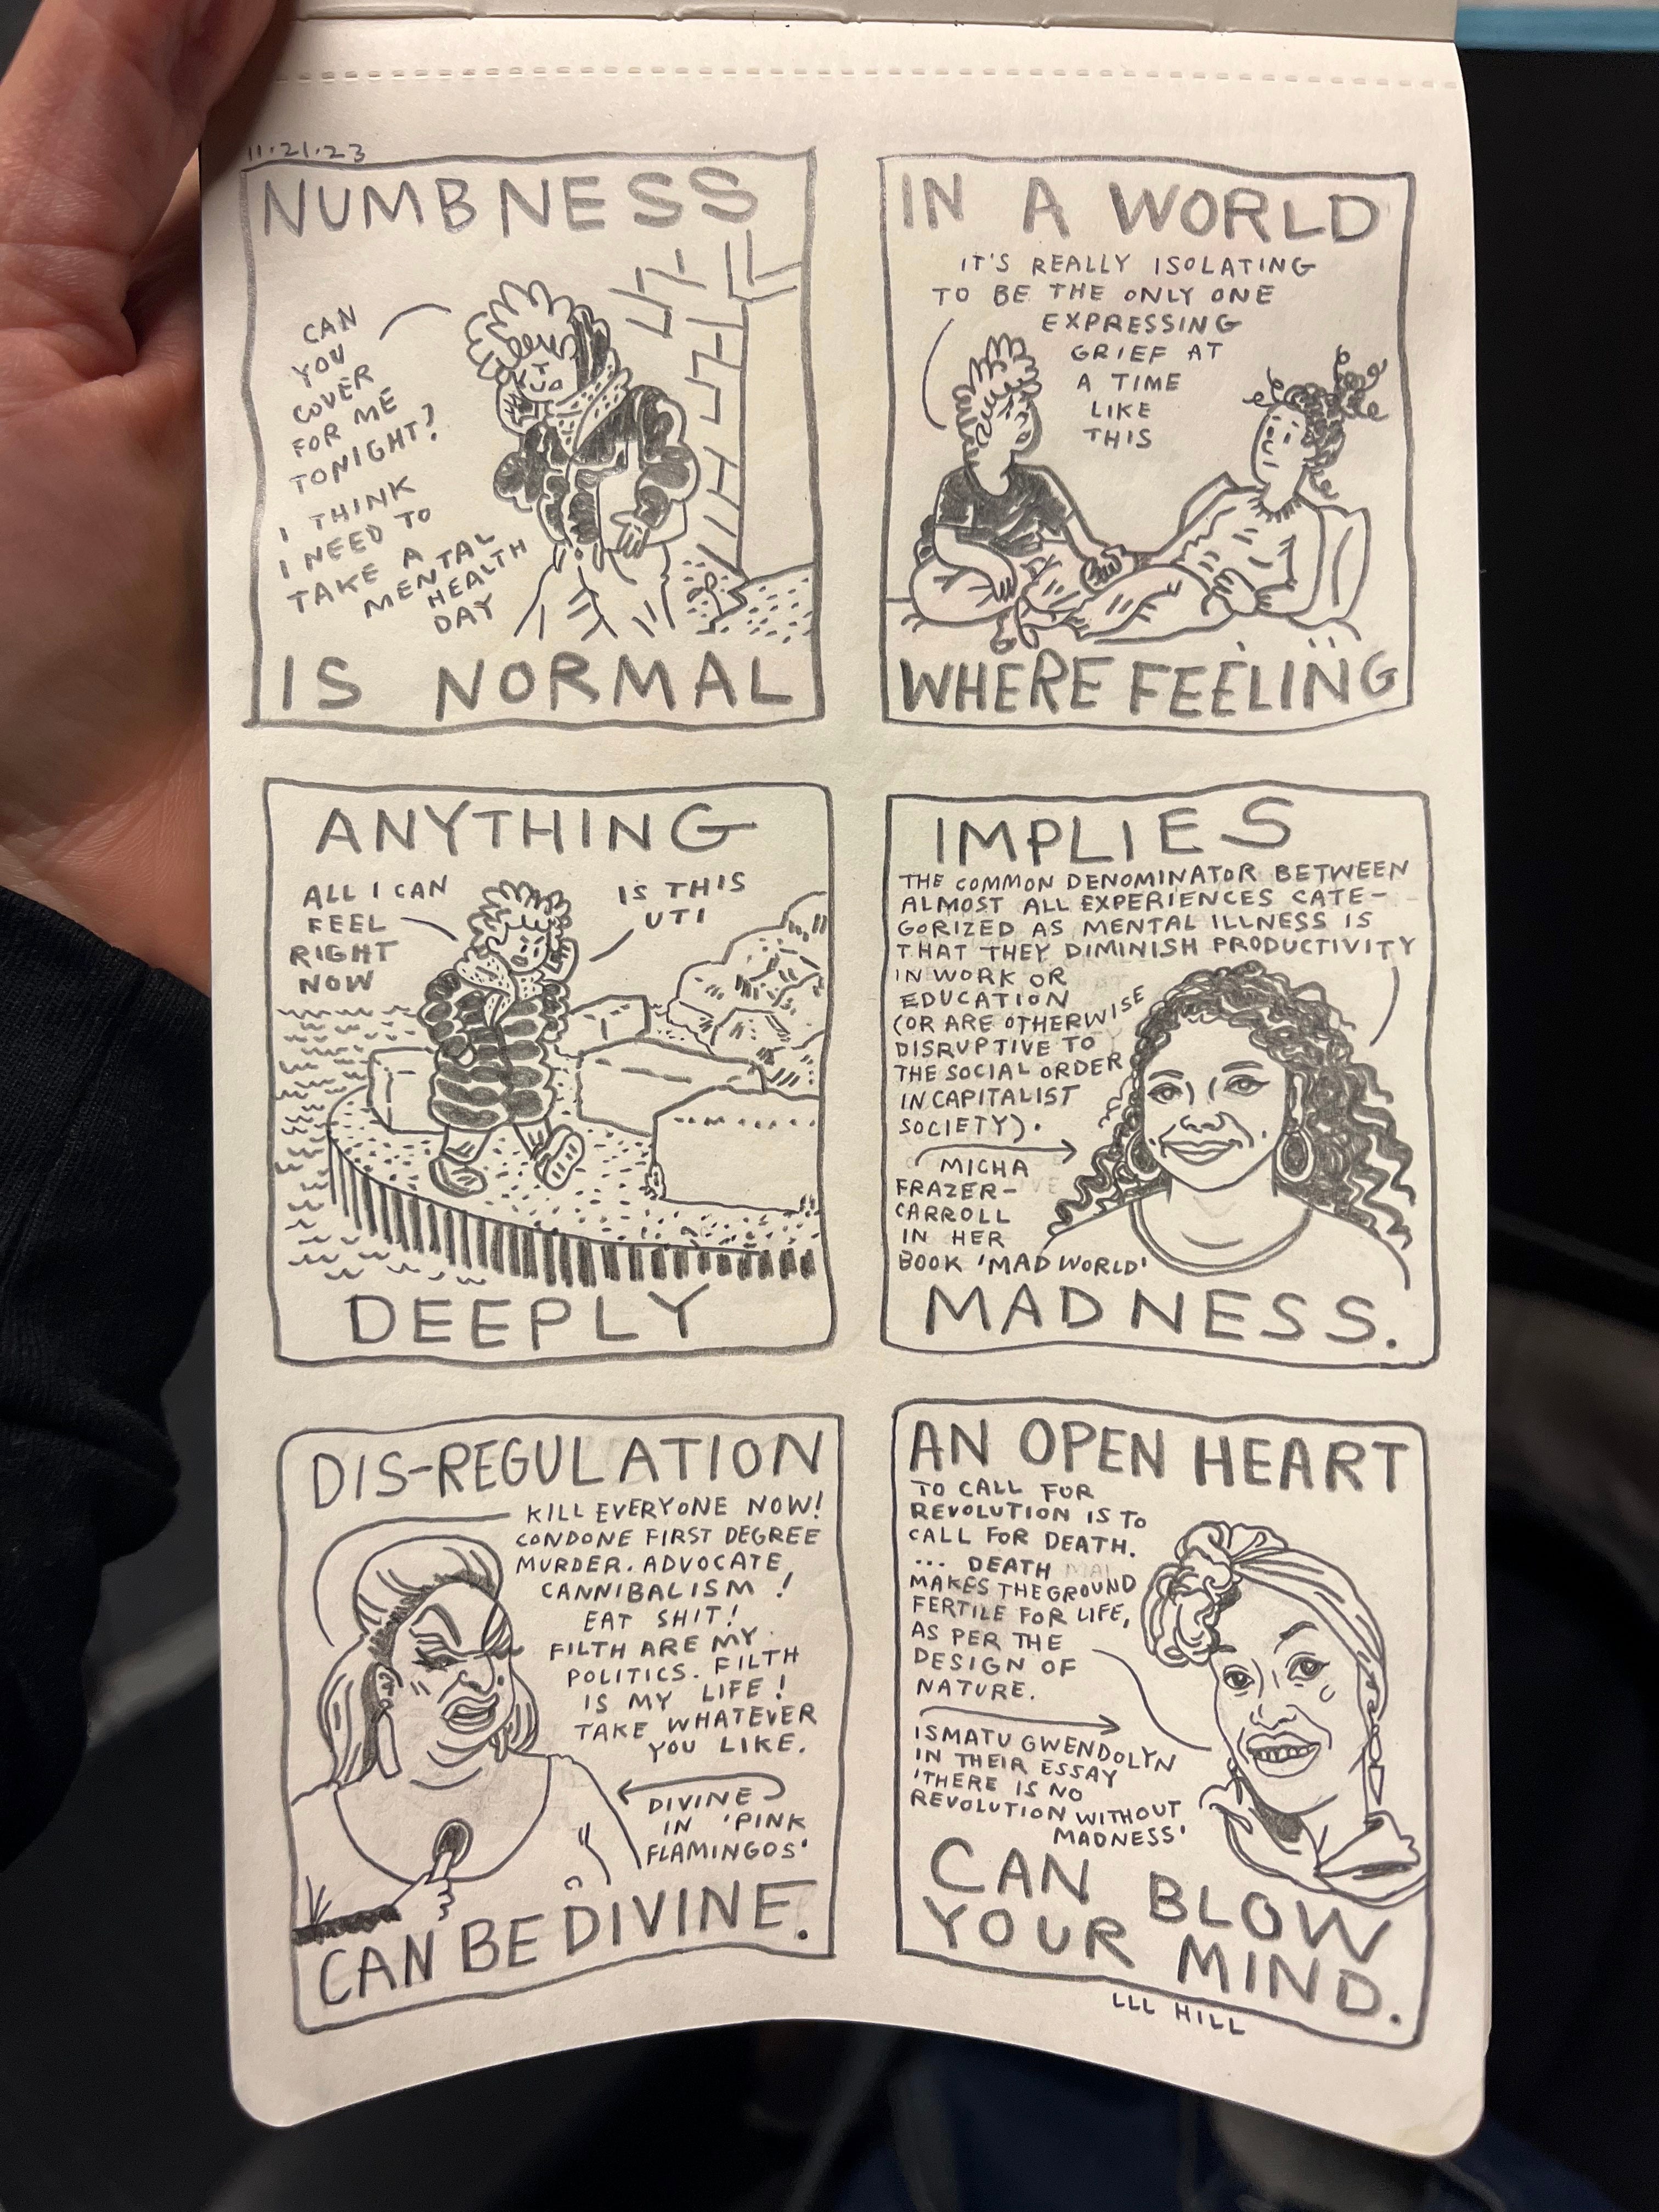 11.21.23
NUMBNESS
CAN
YOU
COVER
FOR ME
TONIGHT?
I THINK
I NEED TO
TAKE A
MENTAL
HEALTH
DAY
IS NORMAL
IN A WORLD
IT'S REALLY ISOLATING
TO BE THE ONLY ONE
EXPRESSING
GRIEF AT
A TIME
LIKE
THIS
WHERE FEELING
ANYTHING
ALL I CAN
FEEL
RIGHT
NOW
IS THIS
UTI
DEEPLY
IMPLIES
THE COMMON DENOMINATOR BETWEEN
ALMOST ALL EXPERIENCES CATE-
GORIZED AS MENTAL ILLNESS IS
THAT THEY DIMINISH PRODUCTIVITY
IN WORK OR
EDUCATION
(OR ARE OTHERWISE
DISRUPTIVE TO
THE SOCIAL ORDER
IN CAPITALIST
SOCIETY).
MICHA
FRAZER-
CARROLL
IN HER
BOOK 'MAD WORLD'
MADNESS.
DIS-REGULATION
KILL EVERYONE NOW!
CONDONE FIRST DEGREE
MURDER. ADVOCATE
CANNIBALISM!
EAT SHIT!
FILTH ARE MY
POLITICS. FILTH
IS MY LIFE!
TAKE WHATEVER
YOU LIKE.
DIVINE
IN 'PINK
FLAMINGOS'
CAN BE DIVINE.
AN OPEN HEART
TO CALL FOR
REVOLUTION IS TO
CALL FOR DEATH.
... DEATH
MAKES THE GROUND
FERTILE FOR LIFE,
AS PER THE
DESIGN OF
NATURE.
ISMATU GWENDOLYN
IN THEIR ESSAY
'THERE IS NO
REVOLUTION WITHOUT
MADNESS'
CAN BLOW
YOUR MIND.
LLL HILL